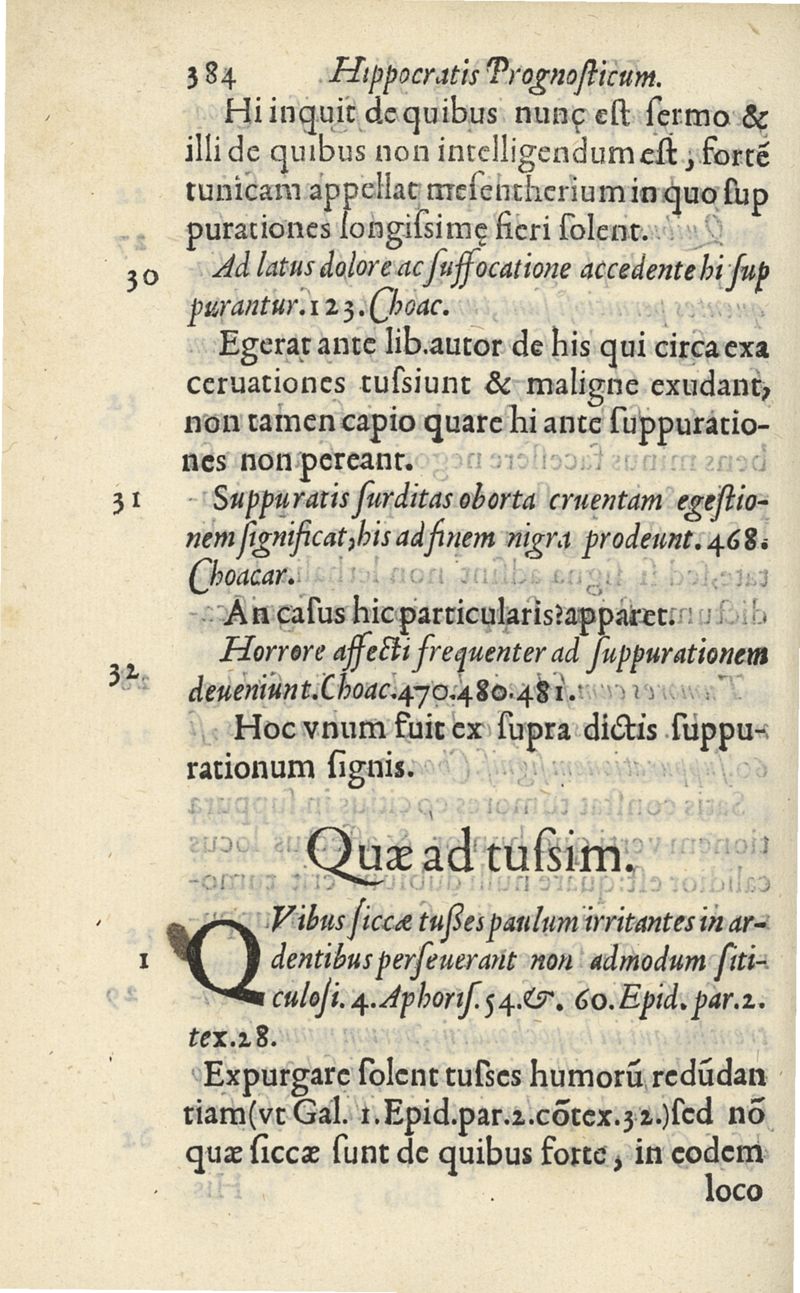 384 Hippocratis Prognosticum.
Hi inquit de quibus nunc est sermo &
illi de quibus non intelligendum est, fortẽ
tunicam appellat mesentherium in quo sup
purationes longissimę fieri solent.
30 Ad latus dolore ac suffocatione accedente hi sup
purantur. 123. Choac.
Egerat ante lib. autor de his qui circa exa
ceruationes tussiunt & maligne exudant,
non tamen capio quare hi ante suppuratio-
nes non pereant.
31 Suppuratis surditas oborta cruentam egestio-
nem significat, his ad finem nigra prodeunt. 468.
Choacar.
An casus hic particularis? apparet.
Horrore affecti frequenter ad suppurationem
32 deueniunt. Choac. 470. 480. 481.
Hoc vnum fuit ex supra dictis suppu-
rationum signis.
Quæ ad tussim.
QVibus siccæ tußes paulum irritantes in ar-
1 dentibus perseuerant non admodum siti-
culosi. 4. Aphoris. 54. &. 60. Epid. par. 2.
tex. 28.
Expurgare solent tusses humorũ redũdan
tiam (vt Gal. 1. Epid. par. 2. cõtex. 32.) sed nõ
quæ siccæ sunt de quibus forte, in eodem
loco